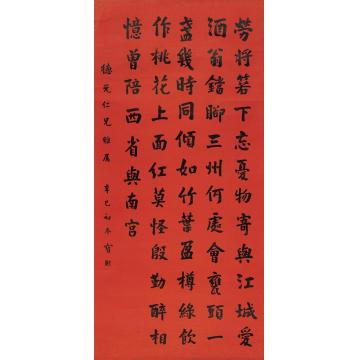 勞將箬下忘憂物寄與江城愛
酒翁鐺脚三州何處會甕頭一
盞幾時同傾如竹葉盈樽綠飲
作桃花上面紅莫怪殷勤醉相
憶曾陪西省與南宮
德元仁兄雅屬 辛巳初冬 寶熙